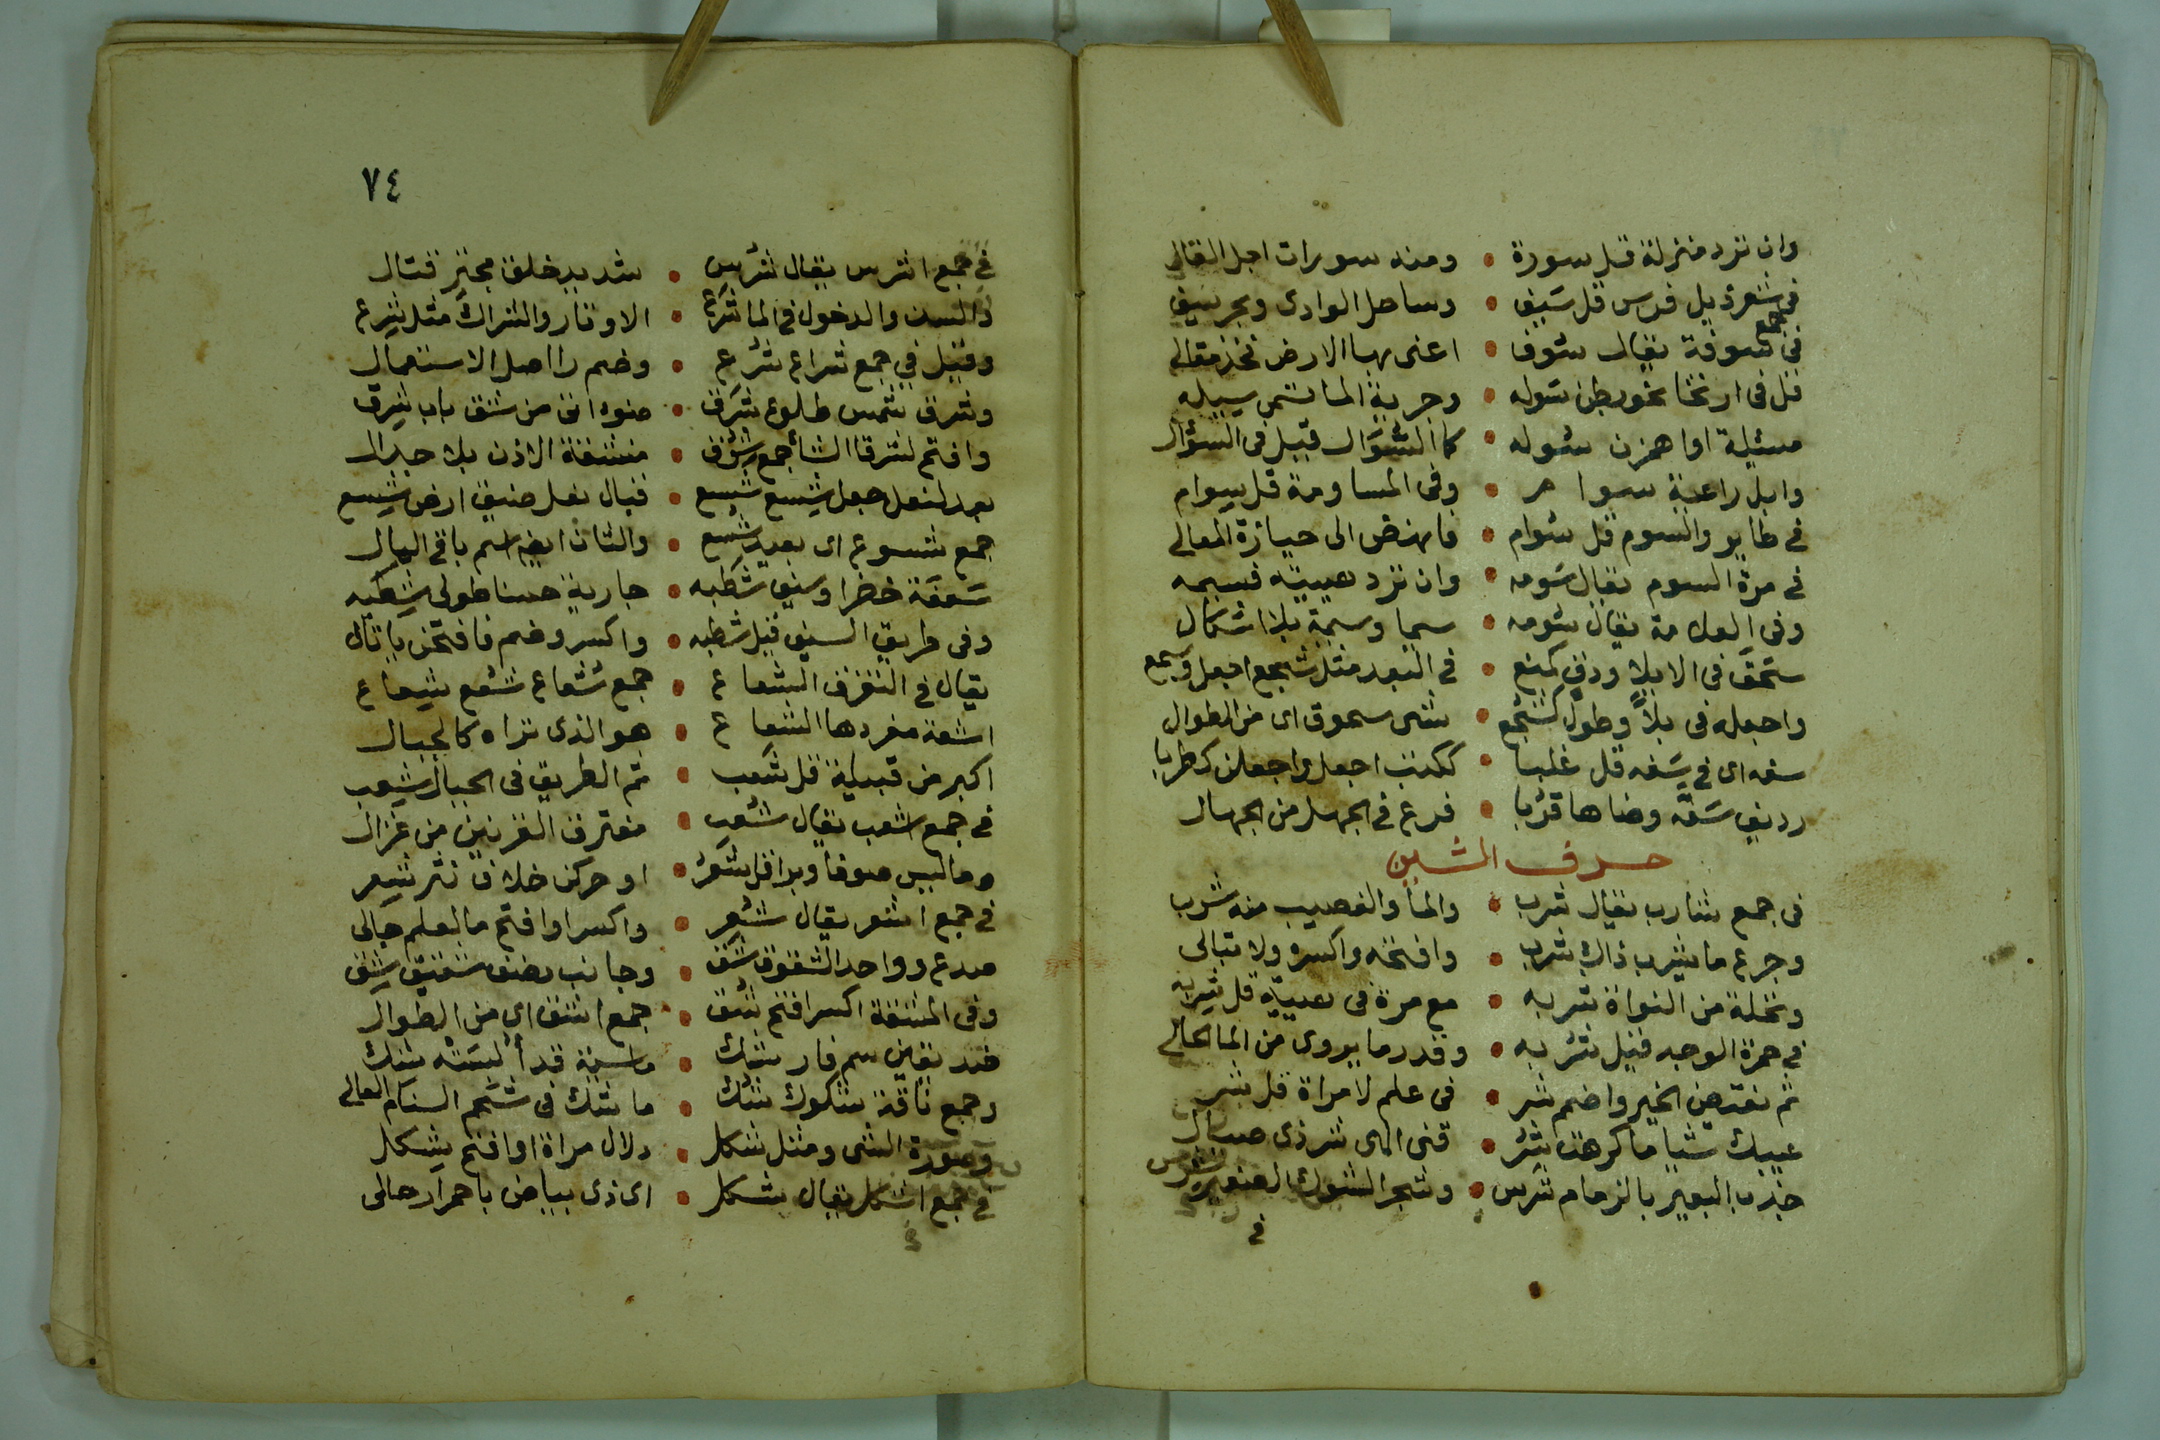 وان ترد منزلة قل سورة • ومنه سورات اجل القال
فى شعر ذيل فرس قل سَيف • وساحل الوادى وبحر سِيف
فى جمع سوفة يقال سُوف • اعنى بها الارض فخذ مقالى
قل فى ارتخا نحو بطن سَوله • وجرية الما تسمى سيله
مسئلة او اهمزن سُوله • كما السُّوَال قيل فى السؤال
وابل راعية سوام • وفى المساومة قل سِوام
فى طاير والسوم قل سُوام • فانهض الى حيازة المعالى
فى مرة السوم يقال سَومه • وان ترد هيئته فسيمه
وفى العلامة يقال سُومه • سيما وسيمة بلا اشكال
فى البعد مثل اجعل
واجعله فى وطول • شى سموق اى من الطوال
سفه اى فى سَفه قل غلبا • ككذب اجعل واجعلن كطربا
رديف سَفُه وضاها قربا • فرع فى الجهل من الجهال
حرف الشين
فى جمع شارب يقال شَرب • والما والنصيب منه شِرب
وجرع ما يشرب ذاك شُرب • وافتحه واكسره ولا تبالى
ونخلة من النواة شَربه • مع مرة فى هيئة قل شِربه
فى حمرة الوجه قيل شُربه • وقدر ما يروى من الما الحالى
ثم نقيض الخير واضمم شر • فى علم لامراة قل شر
عيبك شيا ما كرهت شُر • قنى الهى شر ذى ضلال
جذب البعير بالزمام شَرس • وشجر الشوك الصغير شِرس
فى
٧٤
فى جمع اشرس يقال شُرس • شديد خلق مجتر قتال
والسن والدخول فى الما شَرع • الاوتار والشراك مثل شِرع
وقيل فى جمع شراع شُرع • وضم را اصل الاستعمال
وشرق شمس طلوع شَرق • ضوء اتى من شق باب شِرق
وافتح لشرقا الشا جمع شُرق • منشقة الاذن بلا جدال
بعد لنعل جعل شِسع شَسع • قبال نعل ضيق ارض شِسع
جمع شسوع اى بعيد شُسع • والثان ايضا اسم باقى المال
سَعَفَة خضرا وسيف شَطبه • جارية حسنا طولى شِطبه
وفى طريق السيف قيل شُطبه • واكسر وضم فافتحن يا تال
يقال فى التفرق الشعاع • جمع شُعاع شُعع شِعاع
اشعة مفردها الشعاع • هو الذى تراه كالحبال
اكبر من قبيلة قل شَعب • ثم الطريق فى الجبال شِعب
فى جمع اشعب يقال شُعب • مفترق القرنين من غزال
وما ليس صوفا وبرا قل شَعر • او حركن خلاف نثر شِعر
فى جمع اشعر يقال شُعر • واكسر او افتح ما لعلم جالى
صدع وواحد الشقوق شَق • وجانب نصف شقيق شِق
وفى المشقة اكسر افتح شق • جمع اشق اى من الطوال
ضد يقين سم فار شك • ما شئة قد ألبسته شك
وجمع ناقة شكوك شُك • ما شك فى شحم السنام العالى
وصورة الشى ومثل شَكل • دلال مراة او افتح شِكل
فى جمع اشكل يقال شُكل • اى ذى بياض باحمرار حالى